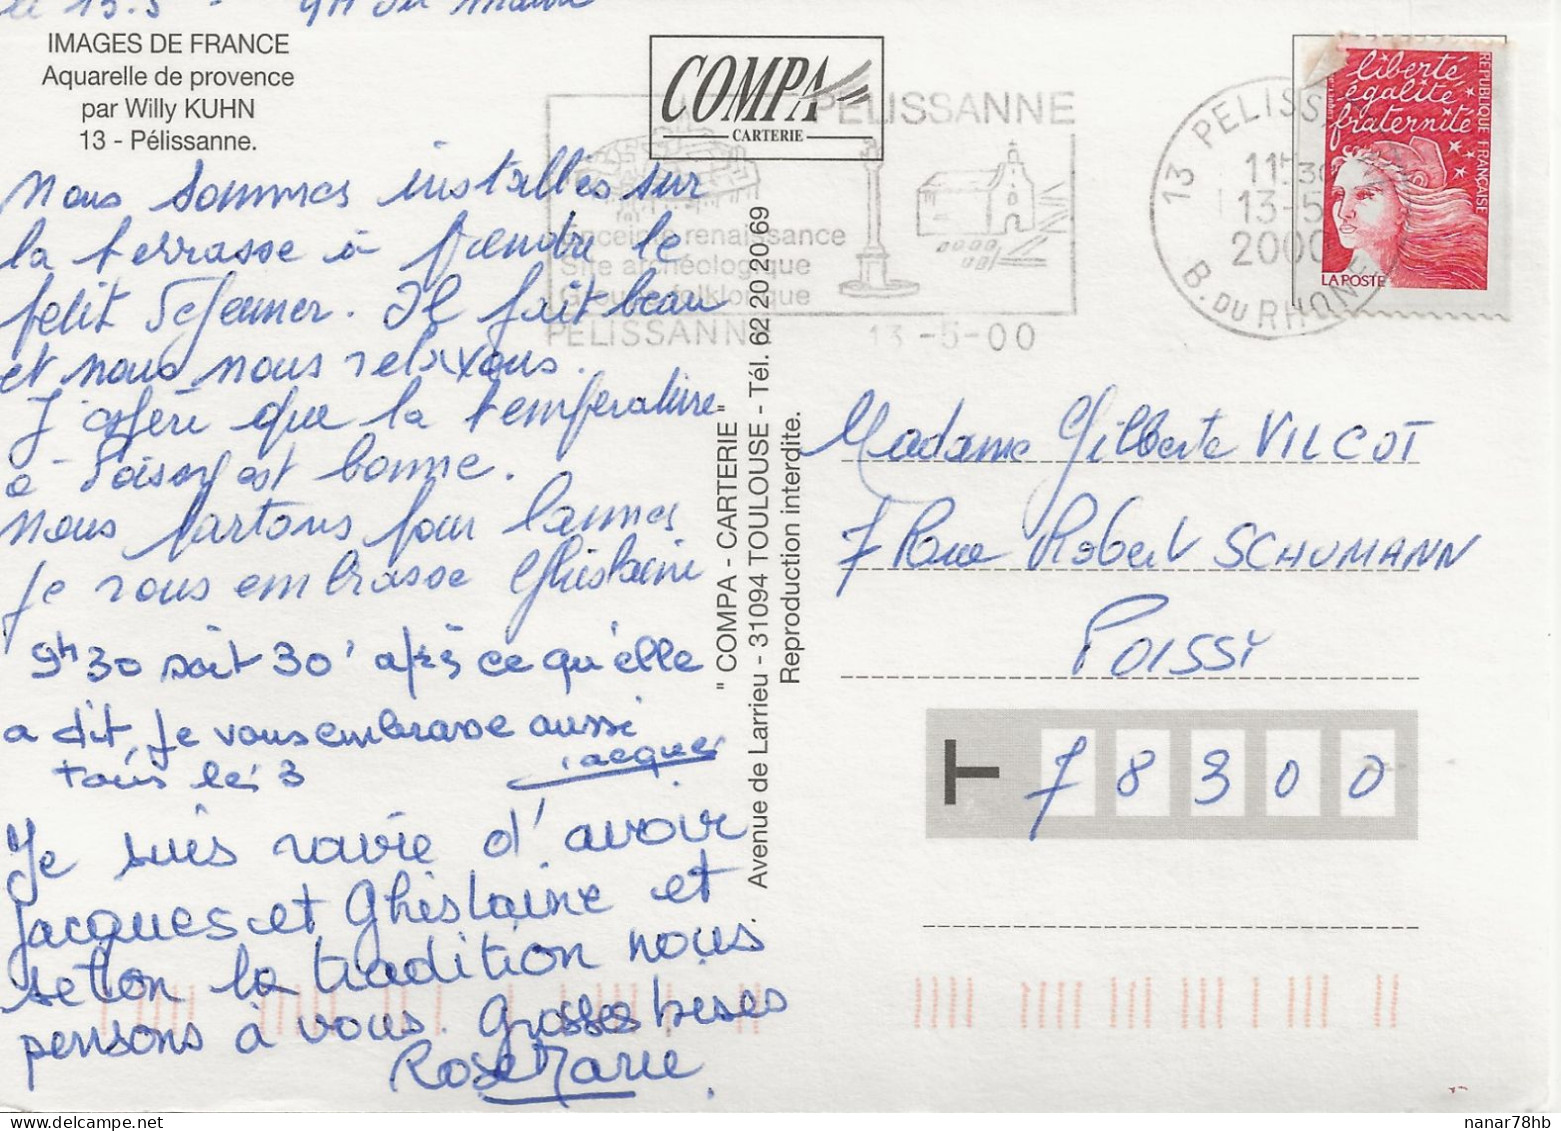 le 13.5 - 9H du matin
IMAGES DE FRANCE
Aquarelle de provence
par Willy KUHN
13 - Pélissanne.
Nous sommes installés sur
la terrasse à prendre le
petit déjeuner. Il fait beau
et nous nous relaxons.
J'espère que la température
à Poissy est bonne.
Nous partons pour Cannes
Je vous embrasse Ghislaine
9h30 soit 30' après ce qu'elle
a dit, Je vous embrasse aussi
tous les 3 Jacques
Je suis ravie d'avoir
Jacques et Ghislaine et
selon la tradition nous
pensons à vous. Grosses bises
Rose Marie
COMPA
CARTERIE
PELISSANNE
Enceinte renaissance
Site archéologique
Groupe folklorique
PELISSANNE 13-5-00
13 PELISSANNE
11H30
13-5
2000
B. DU RHONE
liberté
égalité
fraternité
REPUBLIQUE FRANÇAISE
LA POSTE
" COMPA - CARTERIE "
Avenue de Larrieu - 31094 TOULOUSE - Tél. 62 20 20 69
Reproduction interdite.
Madame Gilberte VILCOT
7 Rue Robert SCHUMANN
POISSY
T 78300
nanar78hb